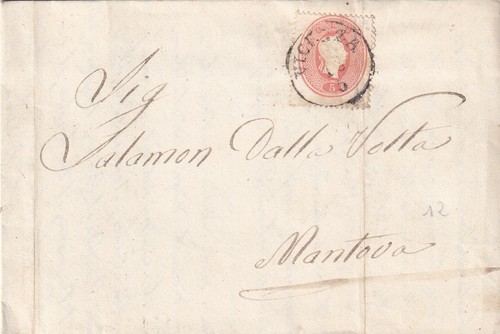 VICENZA
5
Sig
Salamon Dalla Volta
Mantova
12